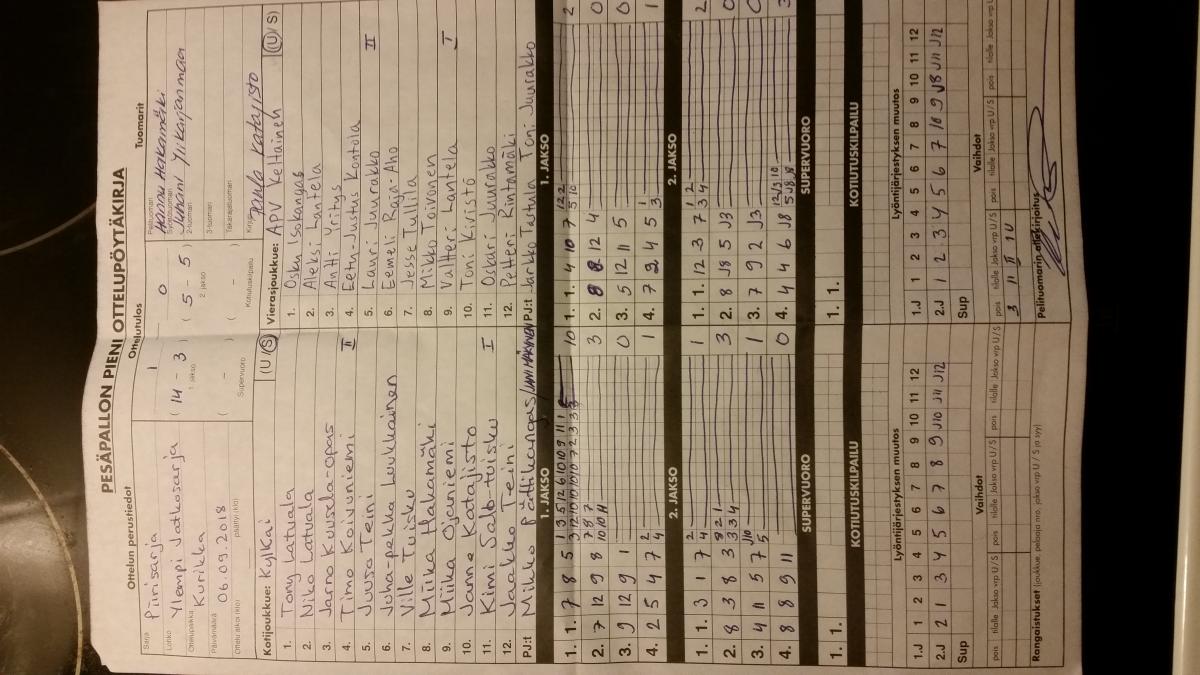 PESÄPALLON PIENI OTTELUPÖYTÄKIRJA
Ottelun perustiedot Ottelutulos Tuomarit
Sarja Piirisarja 1 - 0 Pelituomari Hannu Hakamäki
Lohko Ylempi Jatkosarja (14 - 3) 1. jakso (5 - 5) 2. jakso Syöttötuomari 2-tuomari Juhani Ylikarjanmaa
Ottelupaikka Kurikka 3-tuomari
Päivämäärä 06.09.2018 ( - ) Supervuoro ( - ) Kotiutuskilpailu Takarajatuomari
Ottelu alkoi (klo) päättyi (klo) Kirjuri Paula Katajisto
Kotijoukkue: Kylkai (U/S)
1. Tony Latvala
2. Niko Latvala
3. Jarno Kuusela-opas
4. Timo Koivuniemi II
5. Juuso Teini
6. Juha-pekka Luukkainen
7. Ville Tuisku
8. Miika Hakamäki
9. Miika Ojaniemi
10. Janne Katajisto
11. Kimi Salo-tuisku I
12. Jaakko Teini
PJ:t Mikko pättikangas/
Vierasjoukkue: APV Keltainen (U/S)
1. Osku Isokangas
2. Aleksi Lantela
3. Antti Yritys
4. Eetu-Justus Kontola
5. Lauri Juurakko II
6. Eemeli Raja-Aho
7. Jesse Tullila
8. Mikko Toivonen
9. Valtteri Lantela I
10. Toni Kivistö
11. Oskari Juurakko
12. Petteri Rintamäki
PJ:t Jarkko Tastula Toni Juurakko
1. JAKSO 1. JAKSO
1. 1. 7 8 5 10 1. 1. 4 10 7 2
2. 7 12 9 8 3 2. 8 8 12 4 0
3. 9 12 9 1 0 3. 5 12 11 5 0
4. 2 5 4 7 1 4. 7 2 4 5 1
2. JAKSO 2. JAKSO
1. 1. 3 1 7 1 1. 1. 12 3 7 2
2. 8 3 8 3 3 2. 8 J8 5 J3
3. 4 11 5 7 1 3. 7 9 2 J3
4. 8 8 9 11 0 4. 4 4 6 J8 3
SUPERVUORO SUPERVUORO
1. 1. 1. 1.
KOTIUTUSKILPAILU KOTIUTUSKILPAILU
Lyöntijärjestyksen muutos Lyöntijärjestyksen muutos
1.J 1 2 3 4 5 6 7 8 9 10 11 12 1.J 1 2 3 4 5 6 7 8 9 10 11 12
2.J 2 1 3 4 5 6 7 8 9 J10 J11 J12 2.J 1 2 3 4 5 6 7 10 9 J8 J11 J12
Sup Sup
Vaihdot Vaihdot
pois tilalle Jakso vrp U / S pois tilalle Jakso vrp U / S pois tilalle Jakso vrp U / S pois tilalle Jakso vrp U / S
3 11 II 1 U
Rangaistukset (joukkue, pelaaja nro, jakso vrp U / S (a syy) Pelituomarin allekirjoitus